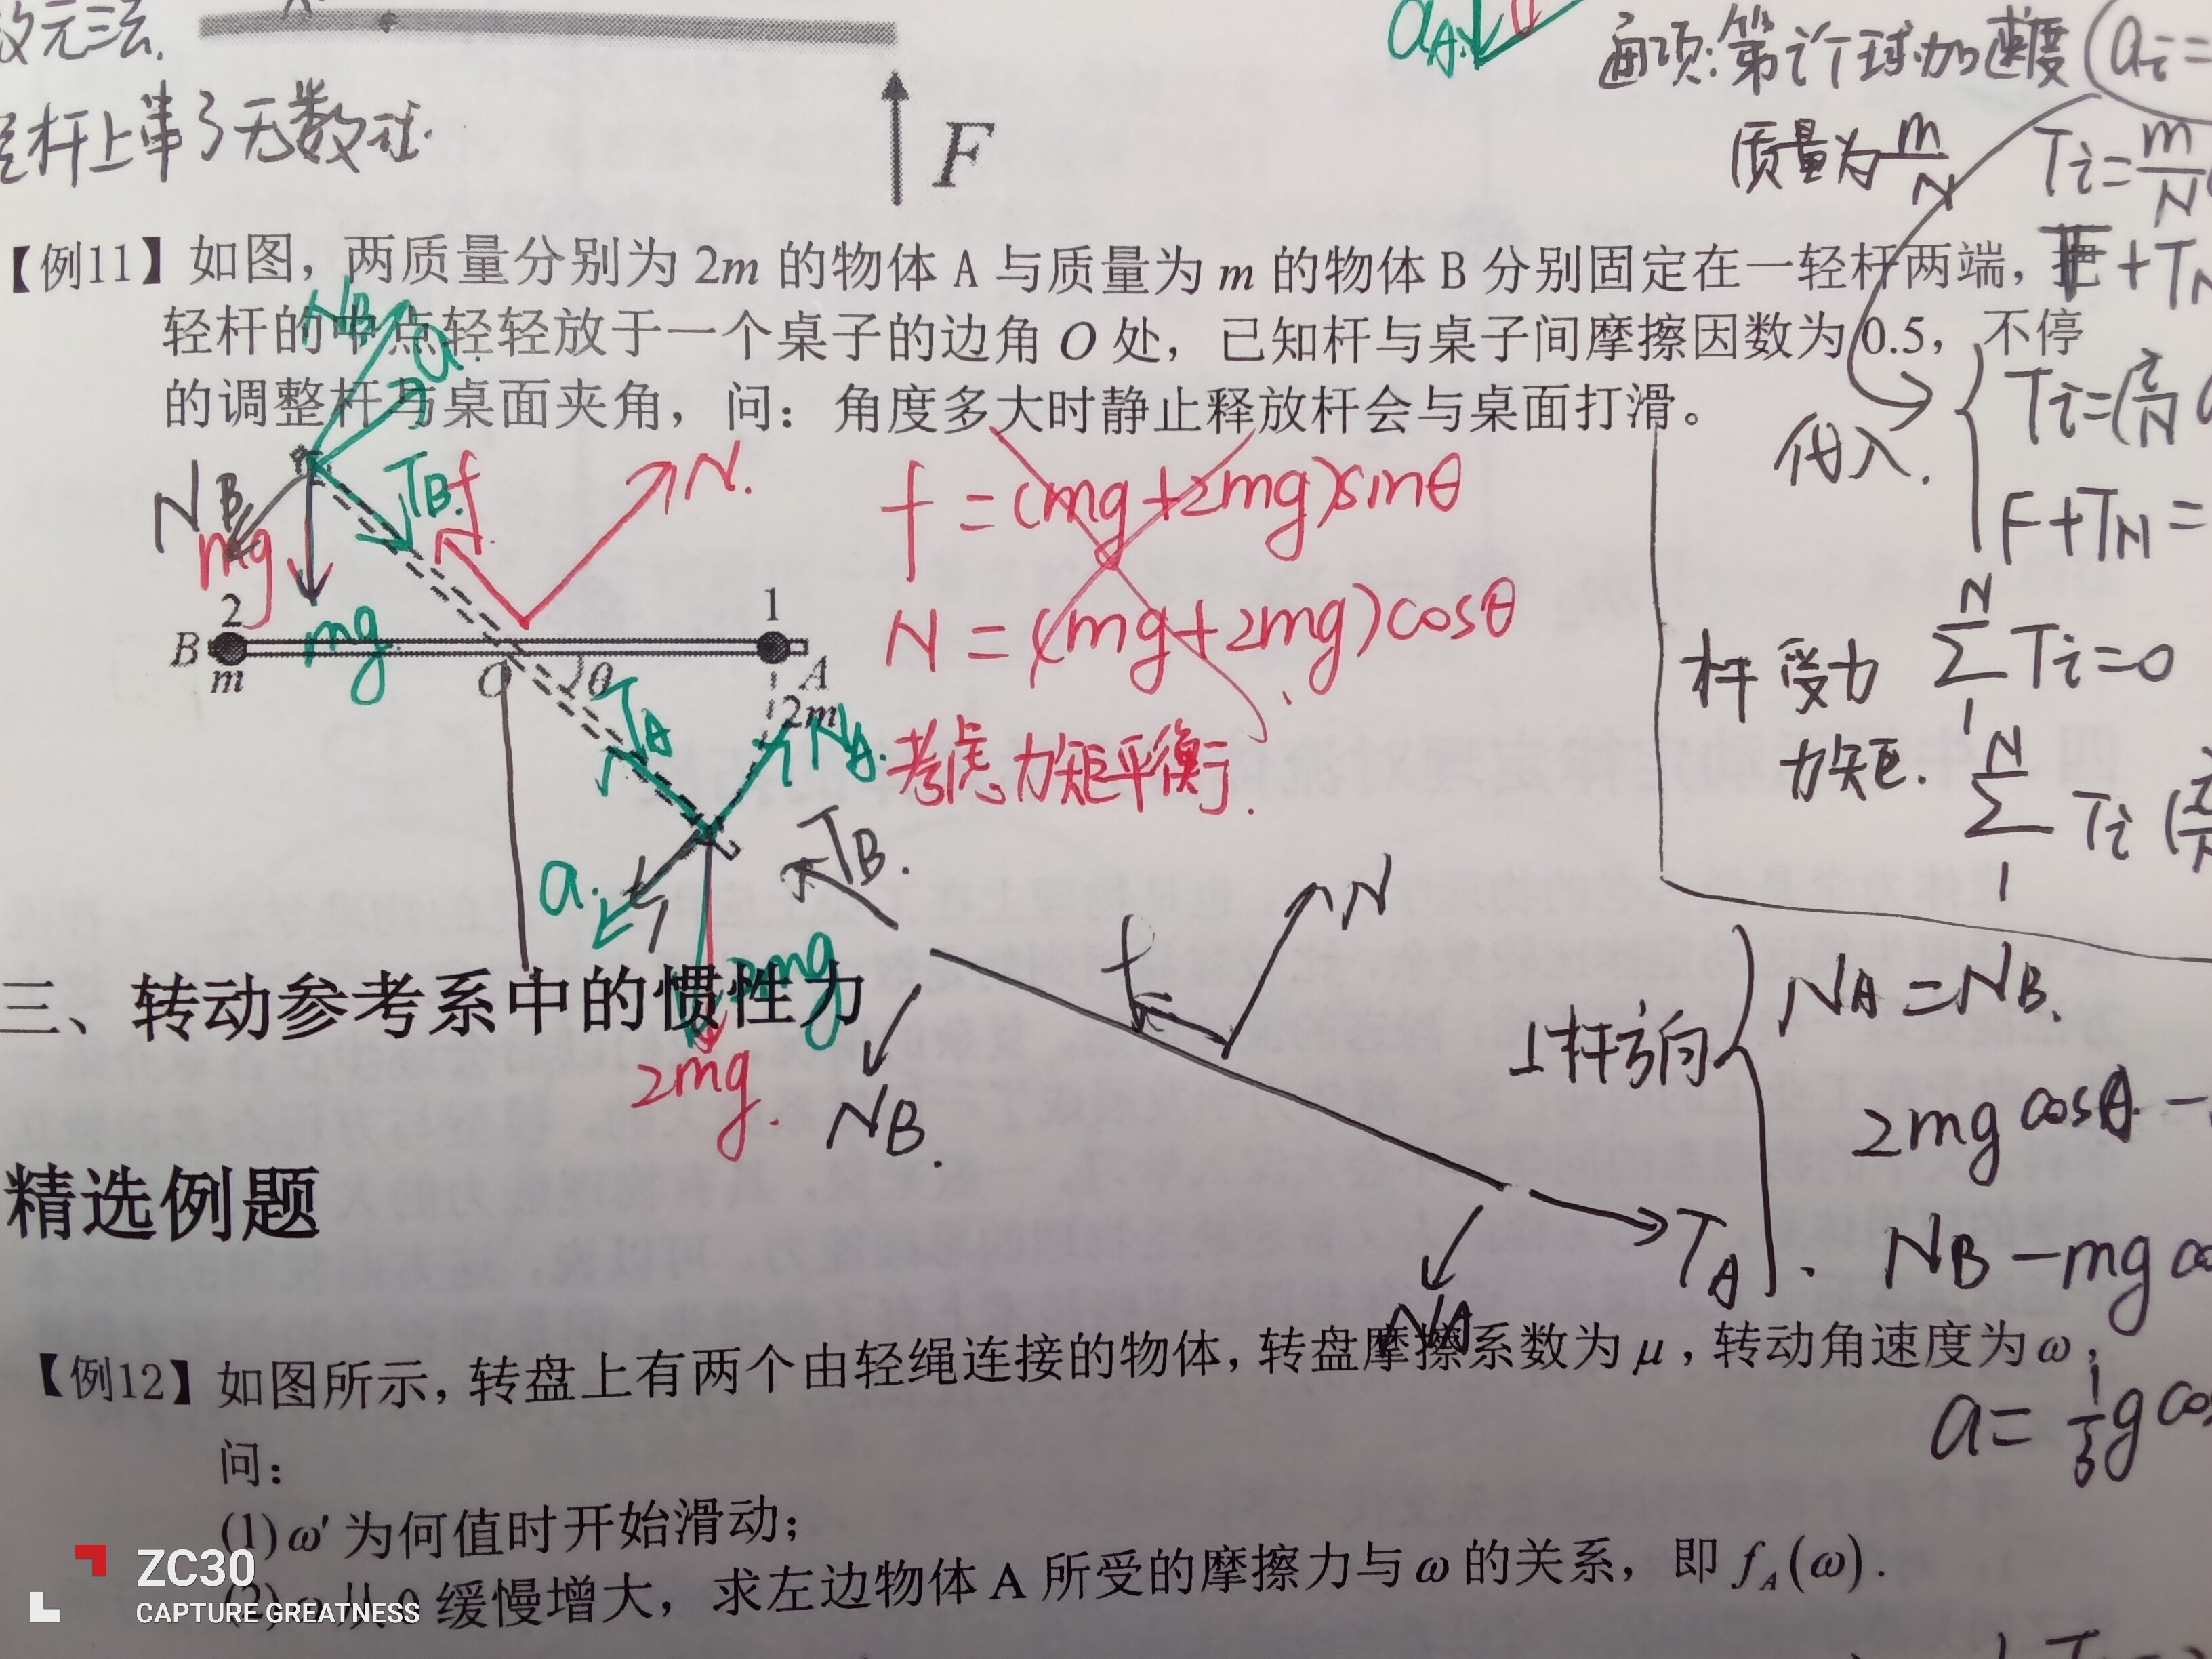 元法.
杆上串了无数球
F
aA.
通项:第i个球加速度 (ai=
质量为 m/N
Ti= m/N
【例11】如图，两质量分别为 2m 的物体 A 与质量为 m 的物体 B 分别固定在一轻杆两端，把
+TN
轻杆的中点轻轻放于一个桌子的边角 O 处，已知杆与桌子间摩擦因数为 0.5，不停
的调整杆与桌面夹角，问：角度多大时静止释放杆会与桌面打滑。
代入.
Ti=(i/N
F+TN=
NB
a.
NB
TB.
f
N.
mg
mg
f=(mg+2mg)sinθ
N=(mg+2mg)cosθ
考虑力矩平衡.
2
1
B
m
O
θ
A
2m
TA
NA.
a.
2mg
2mg.
杆受力
N∑1 Ti=0
力矩.
N∑1 Ti(
TB.
f
N
NB.
TA
NA
三、转动参考系中的惯性力
⊥杆方向
NA=NB.
2mgcosθ-
NB-mg
a=1/3gcos
精选例题
【例12】如图所示，转盘上有两个由轻绳连接的物体，转盘摩擦系数为 μ，转动角速度为 ω，
问：
(1) ω' 为何值时开始滑动；
(2) ω 从 0 缓慢增大，求左边物体 A 所受的摩擦力与 ω 的关系，即 fA(ω).
ZC30
CAPTURE GREATNESS